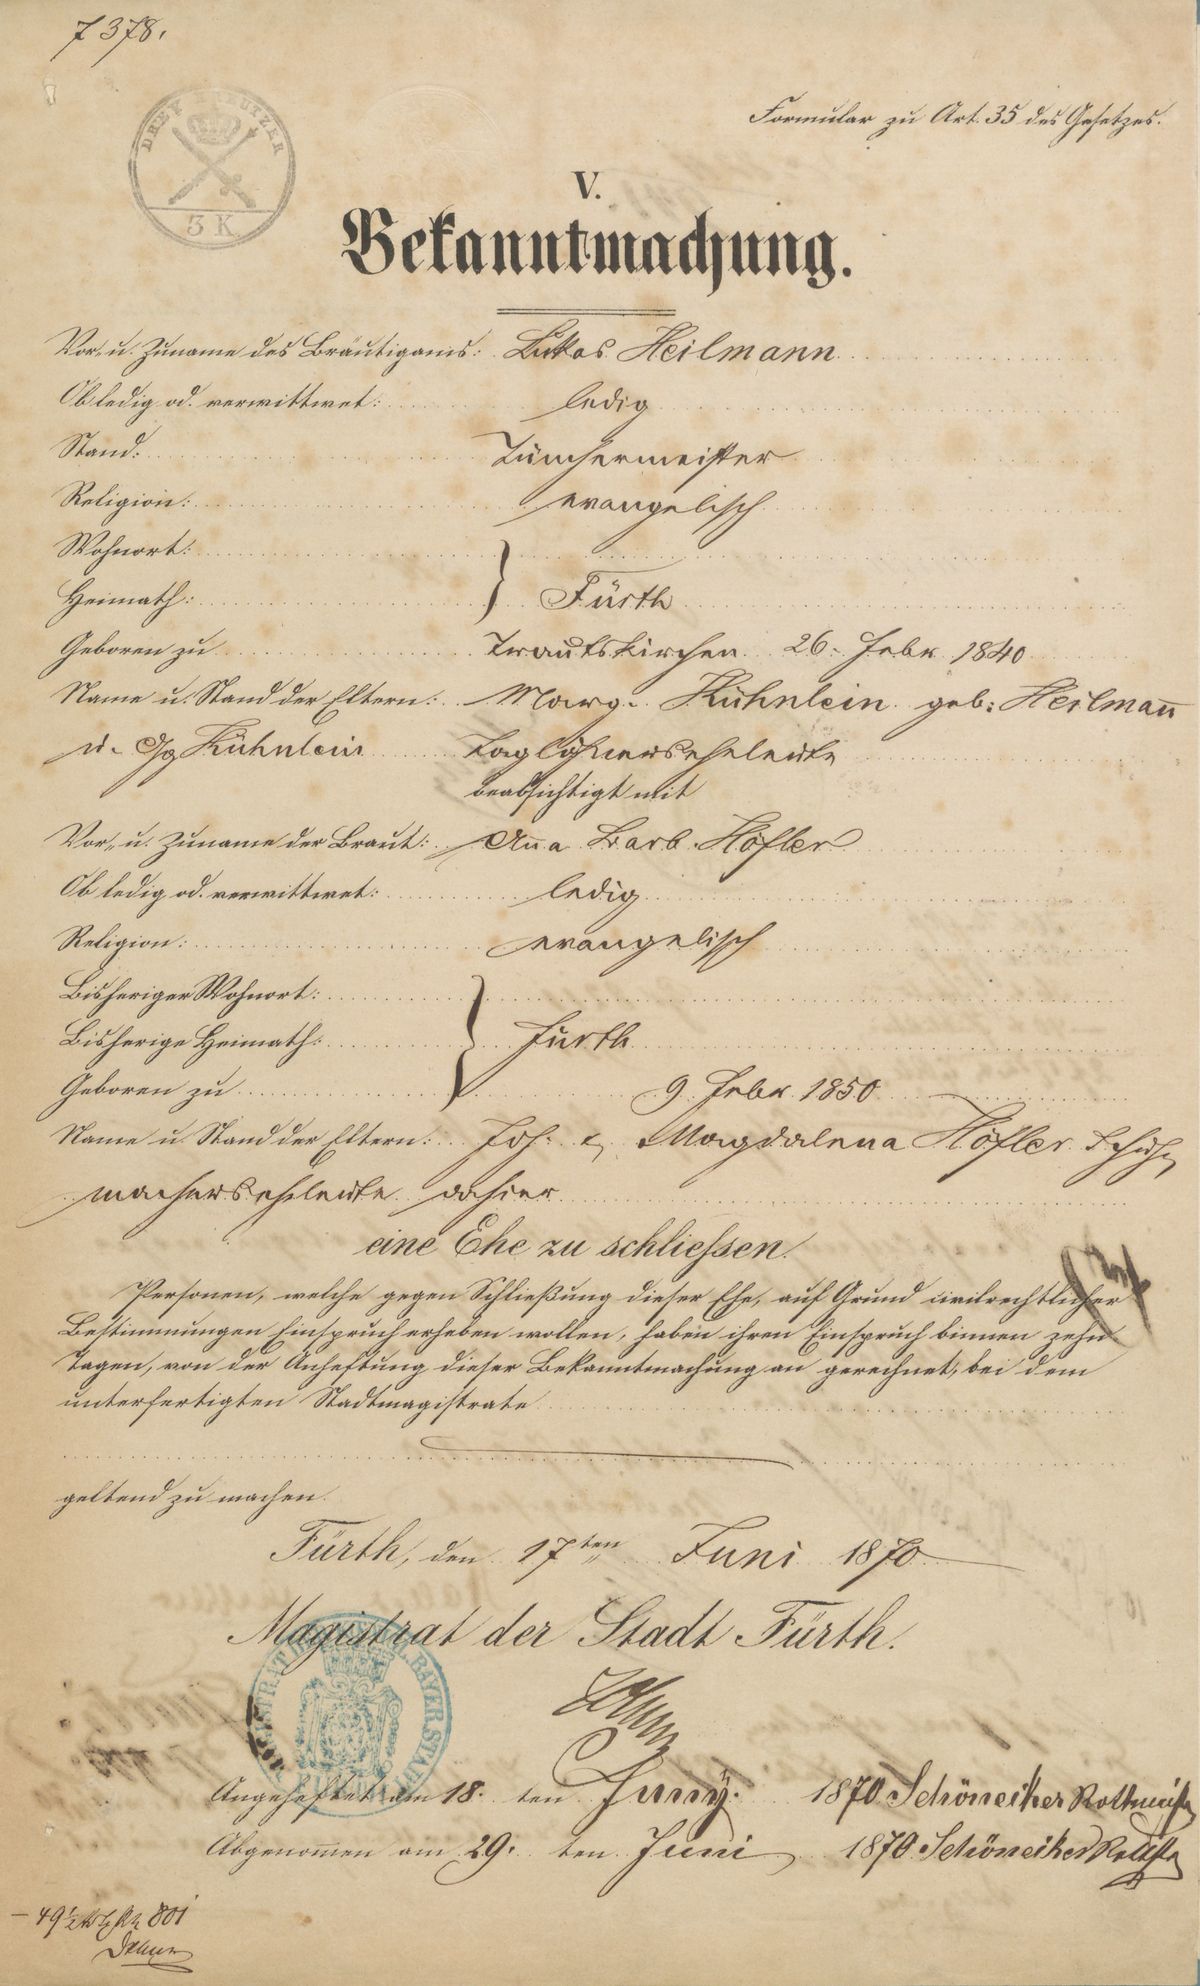 7378.
DREY KREUTZER
3 K
Formular zu Art. 35 des Gesetzes.
V.
Bekanntmachung.
Vor- u. Zuname des Bräutigams: Lukas Heilmann
Ob ledig od. verwittwet: ledig
Stand: Tünchermeister
Religion: evangelisch
Wohnort:
Heimath: Fürth
Geboren zu Trautskirchen 26. Febr 1840
Name u. Stand der Eltern: Marg. Kühnlein geb: Heilman̅
u. Gg Kühnlein Taglöhnerseheleute
beabsichtigt mit
Vor- u. Zuname der Braut: An̅a Barb. Höfler
Ob ledig od. verwittwet: ledig
Religion: evangelisch
Bisheriger Wohnort:
Bisherige Heimath: Fürth
Geboren zu 9. Febr 1850
Name u. Stand der Eltern: Joh. & Magdalena Höfler Schuh-
machereheleute dahier
eine Ehe zu schliessen.
Personen, welche gegen Schließung dieser Ehe, auf Grund civilrechtlicher
Bestimmungen Einspruch erheben wollen, haben ihren Einspruch binnen zehn
Tagen, von der Anheftung dieser Bekanntmachung an gerechnet, bei dem
unterfertigten Stadtmagistrate
geltend zu machen.
Fürth, den 17ten Juni 1870
Magistrat der Stadt Fürth.
Angeheftet am 18. ten Juny. 1870 Schöneiker Rottmeister
Abgenom̅en am 29. ten Juni 1870. Schöneiker